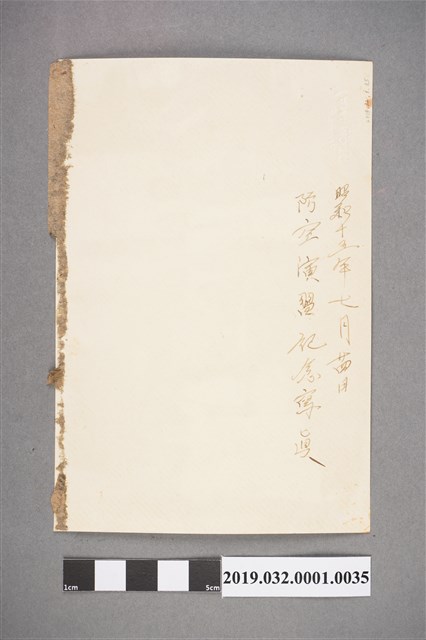 昭和十五年七月廿四日
防空演習記念寫真
1cm
5cm
2019.032.0001.0035